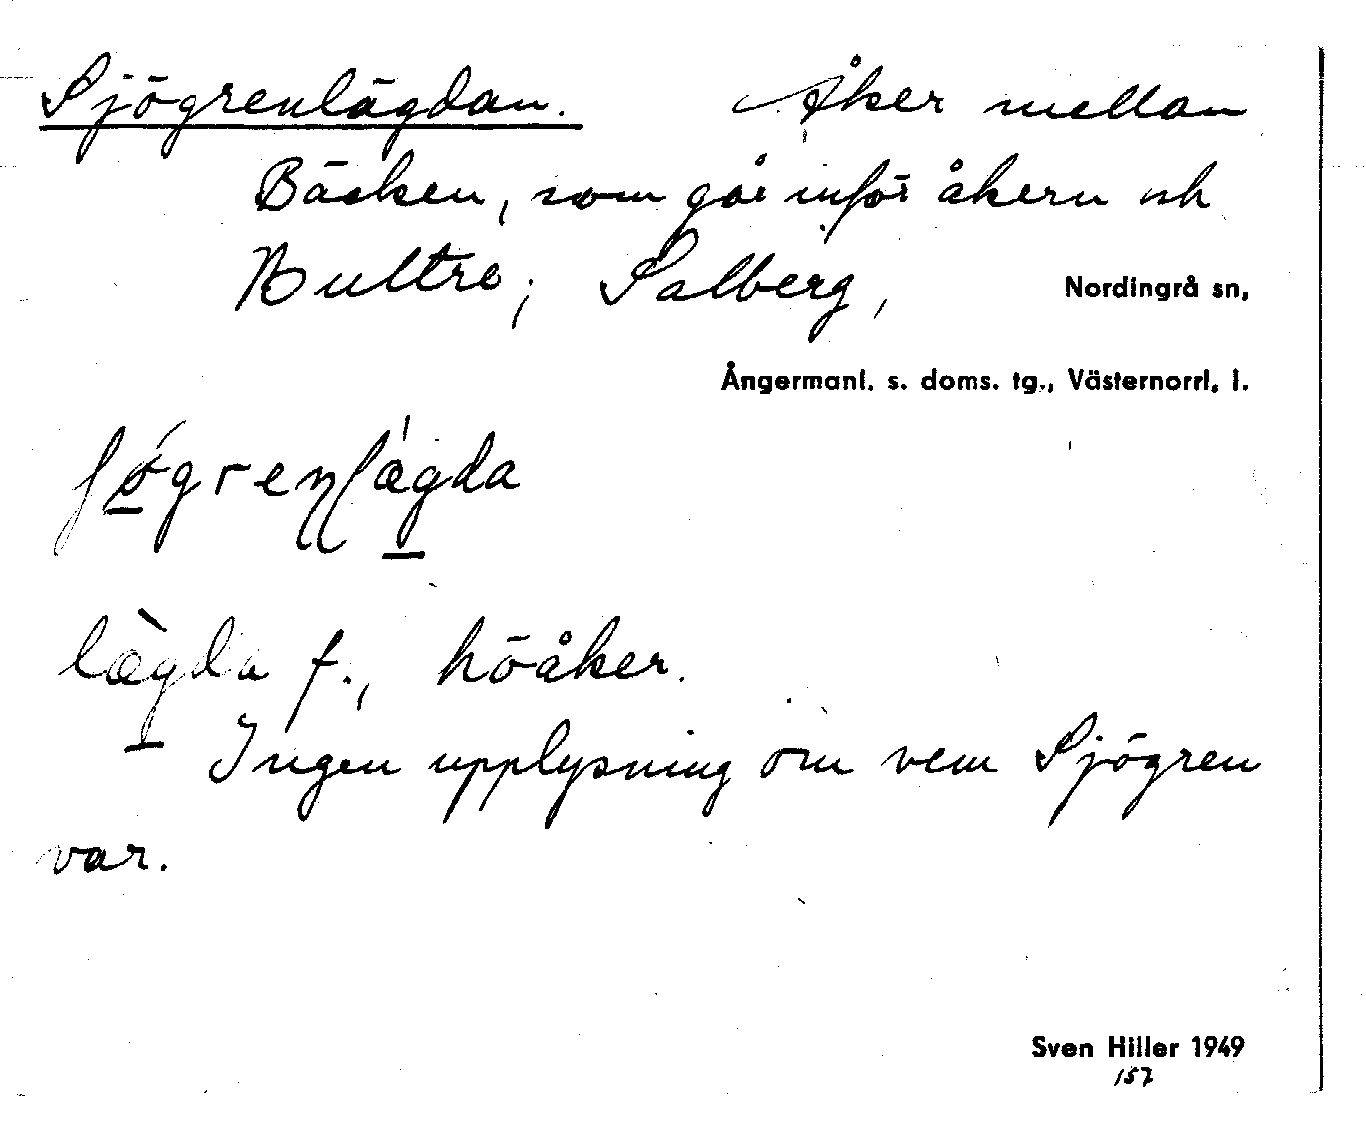 Sjögrenlägdan. Åker mellan
Bäcken, som går inför åkern och
Bultre; Salberg, Nordingrå sn,
Ångermanl. s. doms. tg., Västernorrl. l.
lægda f., höåker.
Ingen upplysning om vem Sjögren
var.
Sven Hiller 1949
157